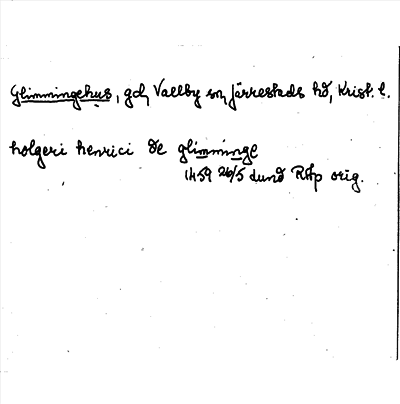 Glimmingehus, gd, Vallby sn, Järrestads hd, Krist. l.
holgeri henrici de glimminge
1459 26/5 Lund Rop orig.